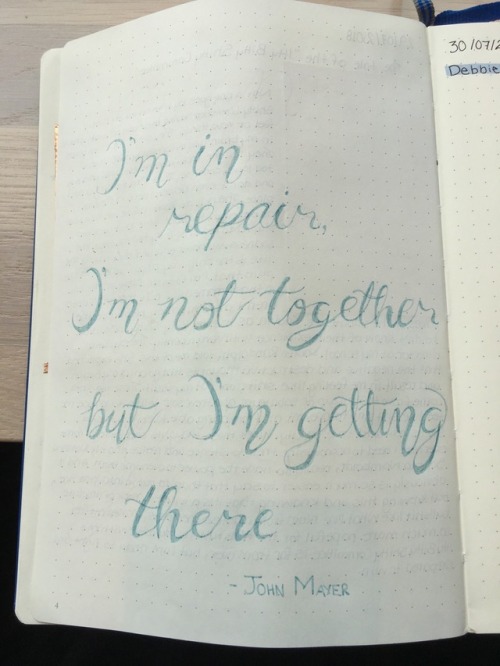 I'm in
repair,
I'm not together
but I'm getting
there
- JOHN MAYER
4
30/07/2
Debbie